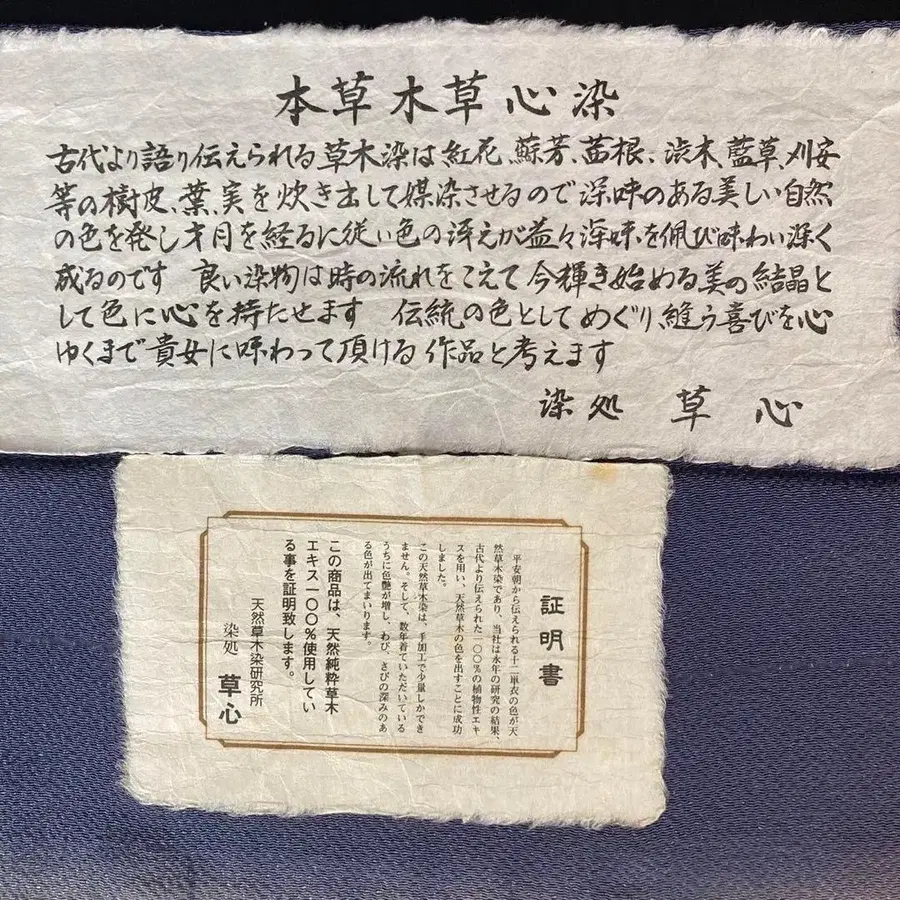 本草木草心染
古代より語り伝えられる草木染は紅花、蘇芳、茜根、渋木、藍草、刈安
等の樹皮、葉、実を炊き出して媒染させるので深味のある美しい自然
の色を発し才月を経るに従い色の冴えが益々深味を佩び味わい深く
成るのです 良い染物は時の流れをこえて今輝き始める美の結晶と
して色に心を持たせます 伝統の色としてめぐり、縫う喜びを心
ゆくまで貴女に味わって頂ける作品と考えます
染処 草心
証明書
平安朝から伝えられる十二単衣の色が天
然草木染であり、当社は永年の研究の結果、
古代より伝えられた一〇〇%の植物性エキ
スを用い、天然草木の色を出すことに成功
しました。
この天然草木染は、手加工で少量しかでき
ません。そして、数年着ていただいている
うちに色艶が増し、わび、さびの深みのあ
る色が出てまいります。
この商品は、天然純粋草木
エキス一〇〇%使用してい
る事を証明致します。
天然草木染研究所
染処 草心